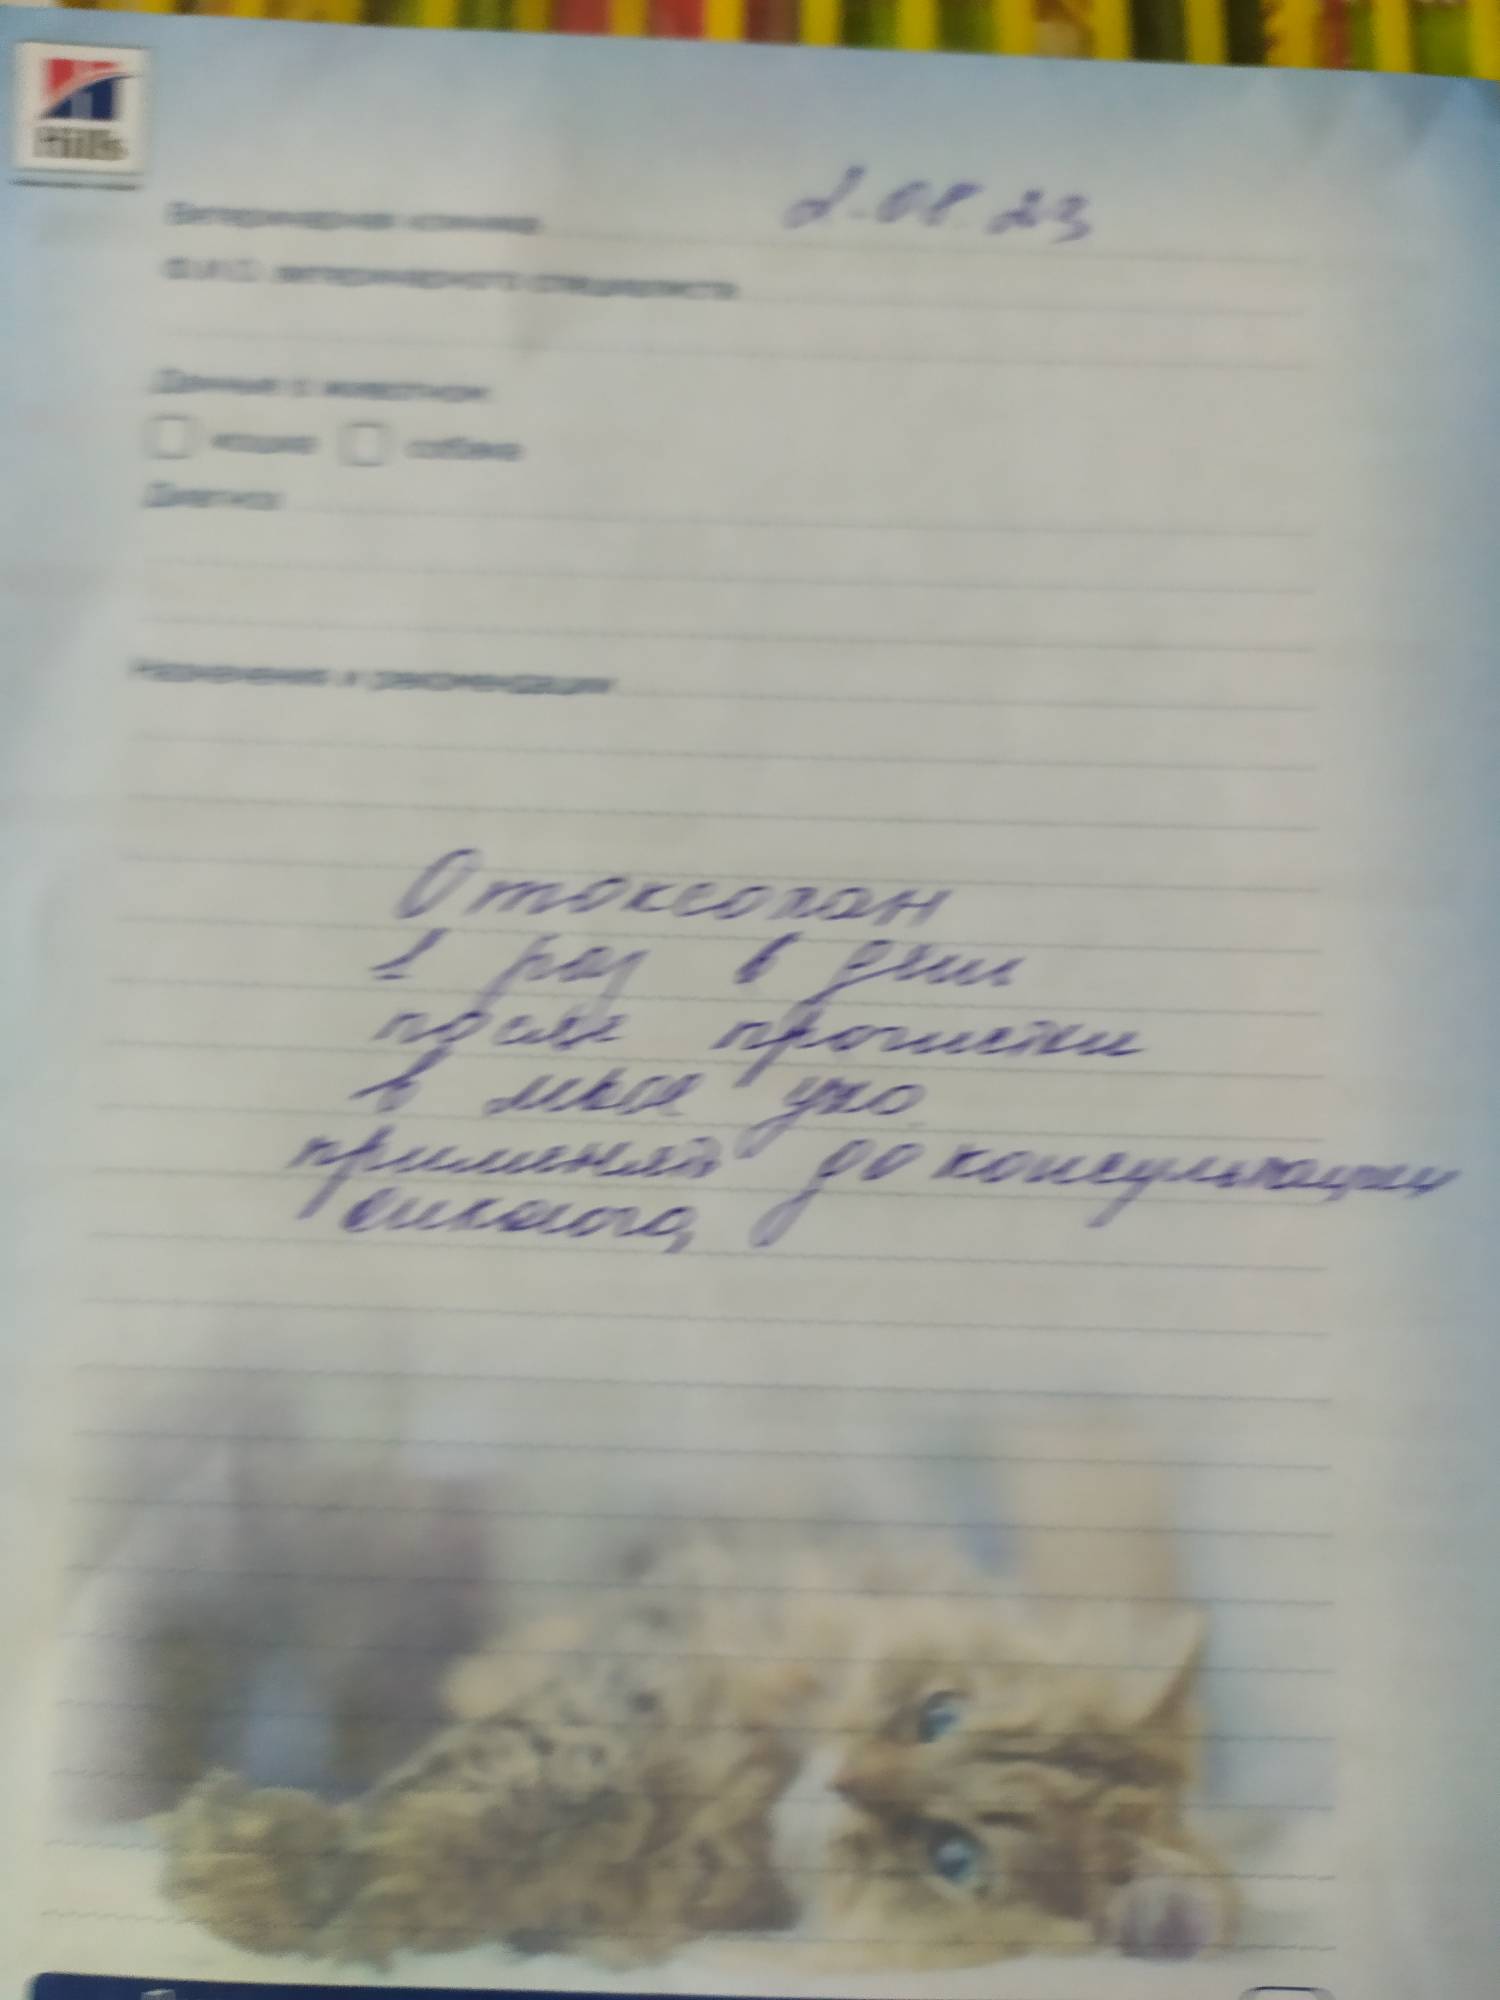 Hill's
Ветеринарная клиника 2.08.23
Ф.И.О. ветеринарного специалиста
Данные о животном
кошка собака
Диагноз
Назначения и рекомендации
Отоксолан
1 раз в день
после прочистки
в левое ухо
применять до консультации
онколога